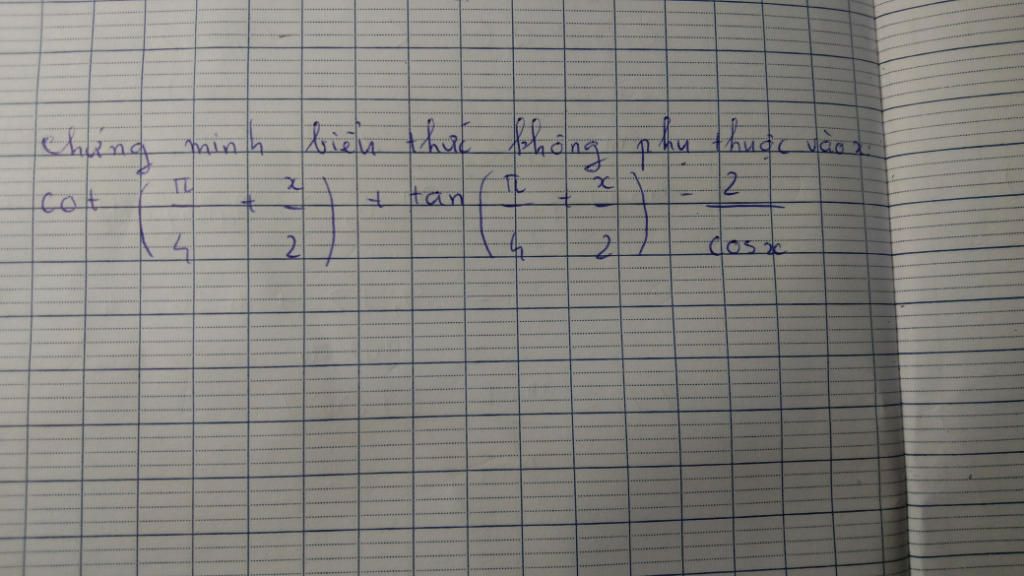 chứng minh biểu thức không phụ thuộc vào x.
cot (π/4 + x/2) + tan (π/4 + x/2) - 2/cosx